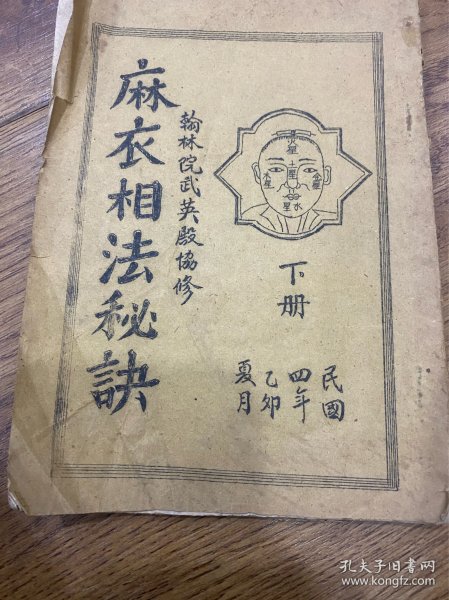 麻衣相法秘訣
翰林院武英殿協修
下册
民國
四年
乙卯
夏月
土星
金星
木星
水星
孔夫子旧书网
www.kongfz.com